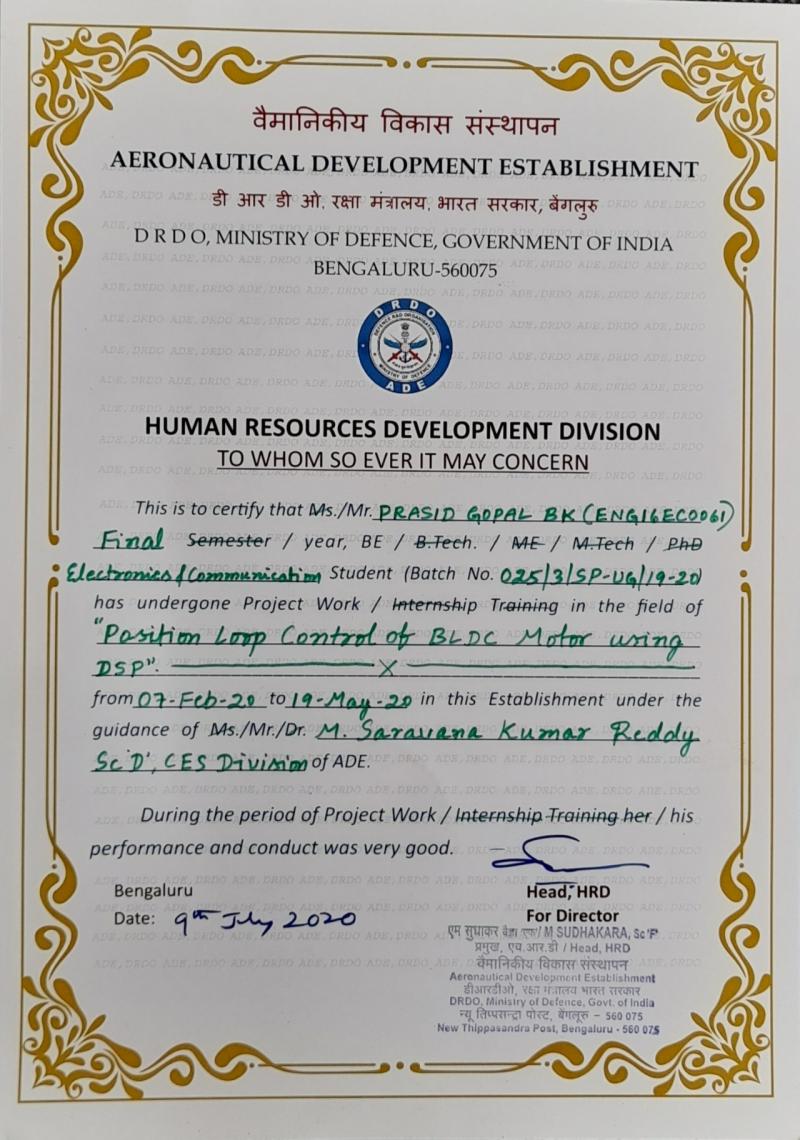 वैमानिकीय विकास संस्थापन
AERONAUTICAL DEVELOPMENT ESTABLISHMENT
डी आर डी ओ, रक्षा मंत्रालय, भारत सरकार, बेंगलुरु
D R D O, MINISTRY OF DEFENCE, GOVERNMENT OF INDIA
BENGALURU-560075
DRDO
DEFENCE R&D ORGANISATION
MINISTRY OF DEFENCE
ADE
HUMAN RESOURCES DEVELOPMENT DIVISION
TO WHOM SO EVER IT MAY CONCERN
This is to certify that Ms./Mr. PRASID GOPAL BK (ENG16EC0061)
Final Semester / year, BE / B.Tech. / ME / M.Tech / PhD
Electronics & Communication Student (Batch No. 025/3/SP-UG/19-20)
has undergone Project Work / Internship Training in the field of
"Position Loop Control of BLDC Motor using
DSP". X
from 07-Feb-20 to 19-May-20 in this Establishment under the
guidance of Ms./Mr./Dr. M. Saravana Kumar Reddy
Sc 'D', CES Division of ADE.
During the period of Project Work / Internship Training her / his
performance and conduct was very good.
Bengaluru
Date: 9th July 2020
Head, HRD
For Director
एम सुधाकर / M SUDHAKARA, Sc 'F'
प्रमुख, एच.आर.डी / Head, HRD
वैमानिकीय विकास संस्थापन
Aeronautical Development Establishment
डीआरडीओ, रक्षा मंत्रालय भारत सरकार
DRDO, Ministry of Defence, Govt. of India
न्यू तिप्पसन्द्रा पोस्ट, बेंगलूरु - 560 075
New Thippasandra Post, Bengaluru - 560 075